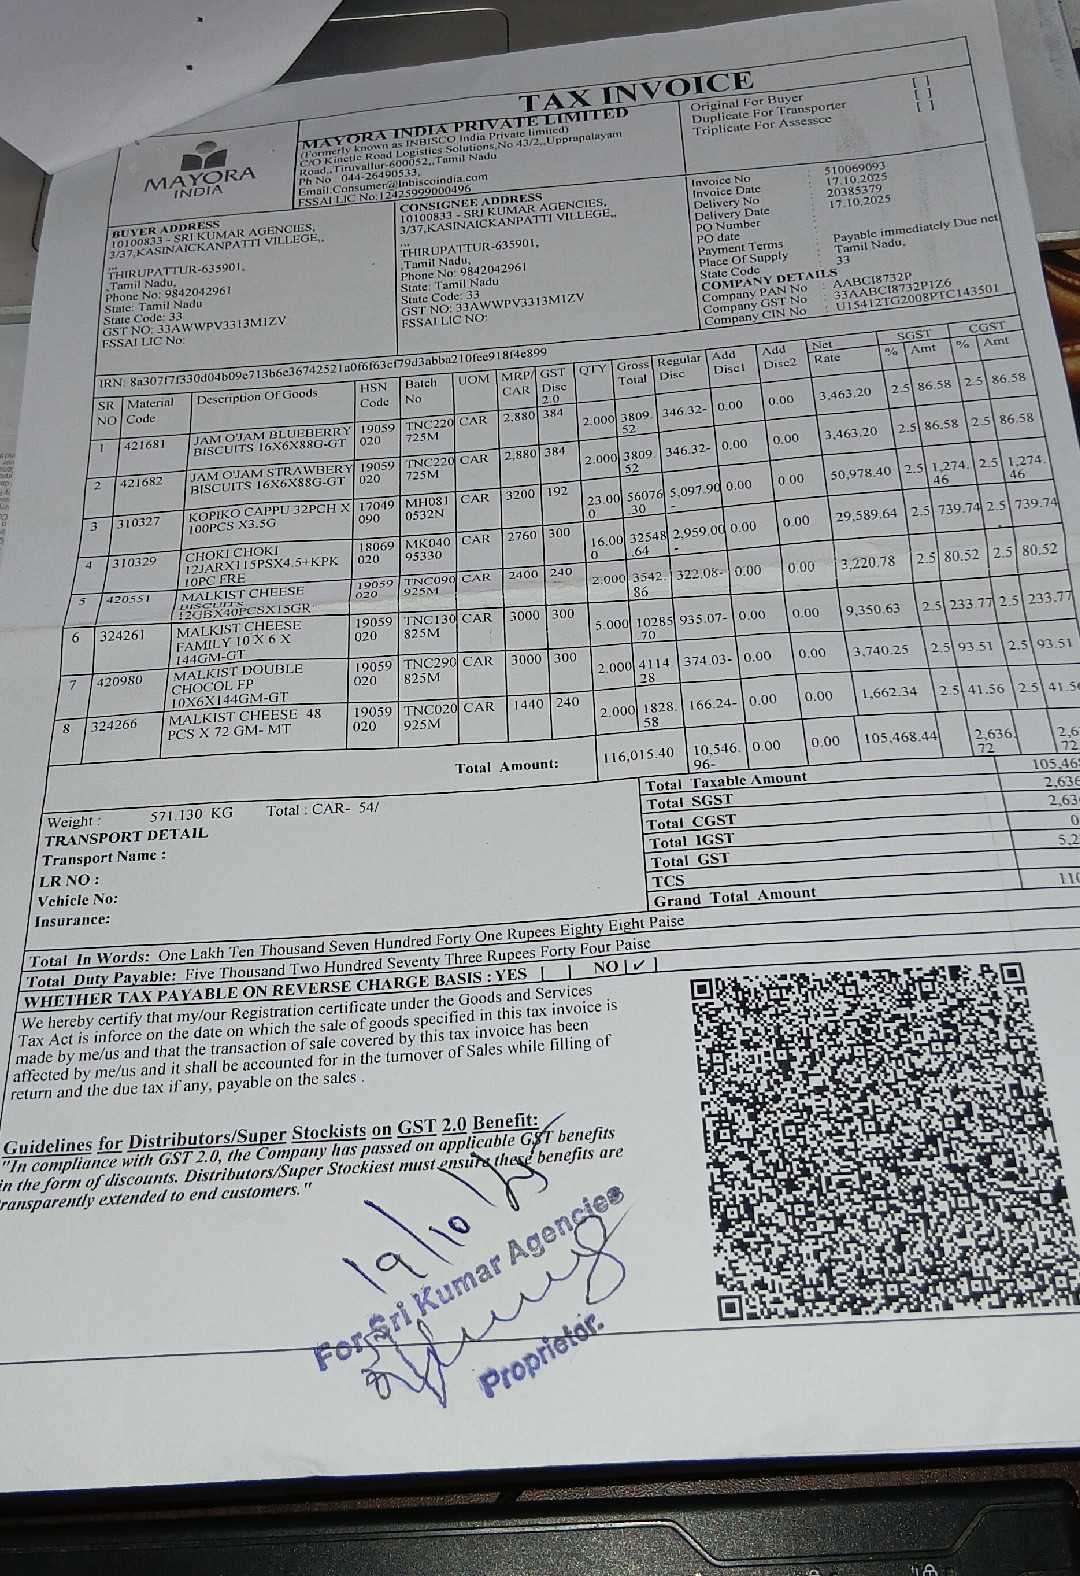 TAX INVOICE
MAYORA INDIA
MAYORA INDIA PRIVATE LIMITED
(Formerly known as INBISCO India Private limited)
C/O Kinetic Road Logistics Solutions,No 43/2,,Upprapalayam
Road,,Tiruvallur-600052,,Tamil Nadu
Ph No : 044-26490533,
Email:Consumer@Inbiscoindia.com
FSSAI LIC No:12425999000496
Original For Buyer [ ]
Duplicate For Transporter [ ]
Triplicate For Assessee [ ]
BUYER ADDRESS
10100833 - SRI KUMAR AGENCIES,
3/37,KASINAICKANPATTI VILLEGE,,
,,,
THIRUPATTUR-635901,
,Tamil Nadu,
Phone No: 9842042961
State: Tamil Nadu
State Code: 33
GST NO: 33AWWPV3313M1ZV
FSSAI LIC No:
CONSIGNEE ADDRESS
10100833 - SRI KUMAR AGENCIES,
3/37,KASINAICKANPATTI VILLEGE,,
,,,
THIRUPATTUR-635901,
,Tamil Nadu,
Phone No: 9842042961
State: Tamil Nadu
State Code: 33
GST NO: 33AWWPV3313M1ZV
FSSAI LIC NO:
Invoice No : 510069093
Invoice Date : 17.10.2025
Delivery No : 20385379
Delivery Date : 17.10.2025
PO Number :
PO date :
Payment Terms : Payable immediately Due net
Place Of Supply : Tamil Nadu,
State Code : 33
COMPANY DETAILS
Company PAN No : AABCI8732P
Company GST No : 33AABCI8732P1Z6
Company CIN No : U15412TG2008PTC143501
IRN: 8a307f7f330d04b09e713b6e36742521a0f6f63cf79d3abba210fee918f4e899
SR NO Material Code Description Of Goods HSN Code Batch No UOM MRP/ CAR GST Disc 2.0 QTY Gross Total Regular Disc Add Disc1 Add Disc2 Net Rate SGST % Amt CGST % Amt
1 421681 JAM O'JAM BLUEBERRY BISCUITS 16X6X88G-GT 19059 020 TNC220 725M CAR 2,880 384 2.000 3809. 52 346.32- 0.00 0.00 3,463.20 2.5 86.58 2.5 86.58
2 421682 JAM O'JAM STRAWBERY BISCUITS 16X6X88G-GT 19059 020 TNC220 725M CAR 2,880 384 2.000 3809. 52 346.32- 0.00 0.00 3,463.20 2.5 86.58 2.5 86.58
3 310327 KOPIKO CAPPU 32PCH X 100PCS X3.5G 17049 090 MH081 0532N CAR 3200 192 23.00 0 56076 .30 5,097.90 - 0.00 0.00 50,978.40 2.5 1,274. 46 2.5 1,274. 46
4 310329 CHOKI CHOKI 12JARX115PSX4.5+KPK 10PC FRE 18069 020 MK040 95330 CAR 2760 300 16.00 0 32548 .64 2,959.00 - 0.00 0.00 29,589.64 2.5 739.74 2.5 739.74
5 420551 MALKIST CHEESE BISCUITS 12GBX30PCSX15GR 19059 020 TNC090 925M CAR 2400 240 2.000 3542. 86 322.08- 0.00 0.00 3,220.78 2.5 80.52 2.5 80.52
6 324261 MALKIST CHEESE FAMILY 10 X 6 X 144GM-GT 19059 020 TNC130 825M CAR 3000 300 5.000 10285 .70 935.07- 0.00 0.00 9,350.63 2.5 233.77 2.5 233.77
7 420980 MALKIST DOUBLE CHOCOL FP 10X6X144GM-GT 19059 020 TNC290 825M CAR 3000 300 2.000 4114 28 374.03- 0.00 0.00 3,740.25 2.5 93.51 2.5 93.51
8 324266 MALKIST CHEESE 48 PCS X 72 GM- MT 19059 020 TNC020 925M CAR 1440 240 2.000 1828. 58 166.24- 0.00 0.00 1,662.34 2.5 41.56 2.5 41.5
Total Amount: 116,015.40 10,546. 96- 0.00 0.00 105,468.44 2,636. 72 2,6 72
Weight : 571.130 KG Total : CAR- 54/
TRANSPORT DETAIL
Transport Name :
LR NO :
Vehicle No:
Insurance:
Total Taxable Amount 105,46
Total SGST 2,636
Total CGST 2,63
Total IGST 0
Total GST 5,2
TCS
Grand Total Amount 110
Total In Words: One Lakh Ten Thousand Seven Hundred Forty One Rupees Eighty Eight Paise
Total Duty Payable: Five Thousand Two Hundred Seventy Three Rupees Forty Four Paise
WHETHER TAX PAYABLE ON REVERSE CHARGE BASIS : YES [ ] NO [✓]
We hereby certify that my/our Registration certificate under the Goods and Services
Tax Act is inforce on the date on which the sale of goods specified in this tax invoice is
made by me/us and that the transaction of sale covered by this tax invoice has been
affected by me/us and it shall be accounted for in the turnover of Sales while filling of
return and the due tax if any, payable on the sales .
Guidelines for Distributors/Super Stockists on GST 2.0 Benefit:
"In compliance with GST 2.0, the Company has passed on applicable GST benefits
in the form of discounts. Distributors/Super Stockiest must ensure these benefits are
transparently extended to end customers."
19/10/25
For Sri Kumar Agencies
Proprietor.